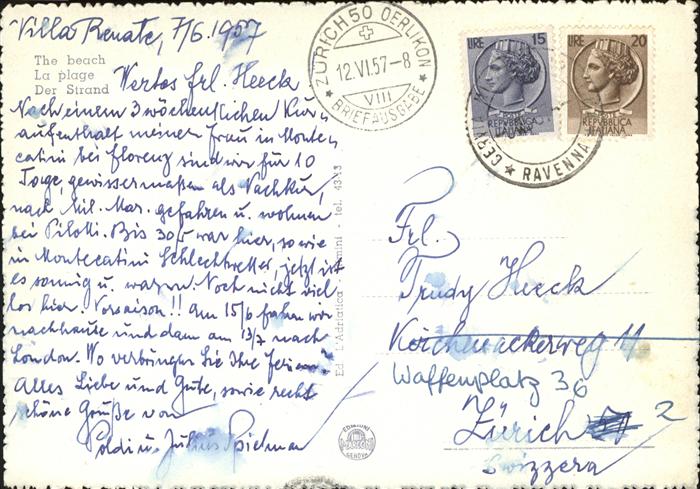 Villa Renate, 7/6.1957
The beach
La plage
Der Strand
Wertes Frl. Heeck
Nach einem 3 wöchentlichen Kur-
aufenthalt meiner Frau in Monte-
catini bei Florenz sind wir für 10
Tage, gewissermaßen als Nachkur,
nach Mil. Mar. gefahren u. wohnen
bei Pilotti. Bis 30/5 war hier, so wie
in Montecatini Schlechtwetter, jetzt ist
es sonnig u. warm. Noch nicht viel
los hier. Vorsaison!! Am 15/6 fahren wir
nachhause und dann am 13/7 nach
London. Wo verbringen Sie Ihre Ferien?
Alles Liebe und Gute, sowie recht
schöne Grüße von
Poldi u. Julius Spielman
Ed. L'Adriatica - tel. 43-13
EDIZIONI
GENOVA
ZÜRICH 50 OERLIKON
12.VI.57-8
VIII
BRIEFAUSGABE
LIRE 15
POSTE
REPUBBLICA
ITALIANA
LIRE 20
POSTE
REPUBBLICA
ITALIANA
RAVENNA
Frl.
Trudy Heeck
Kirchenackerweg 11
Waffenplatz 36
Zürich 2
Svizzera